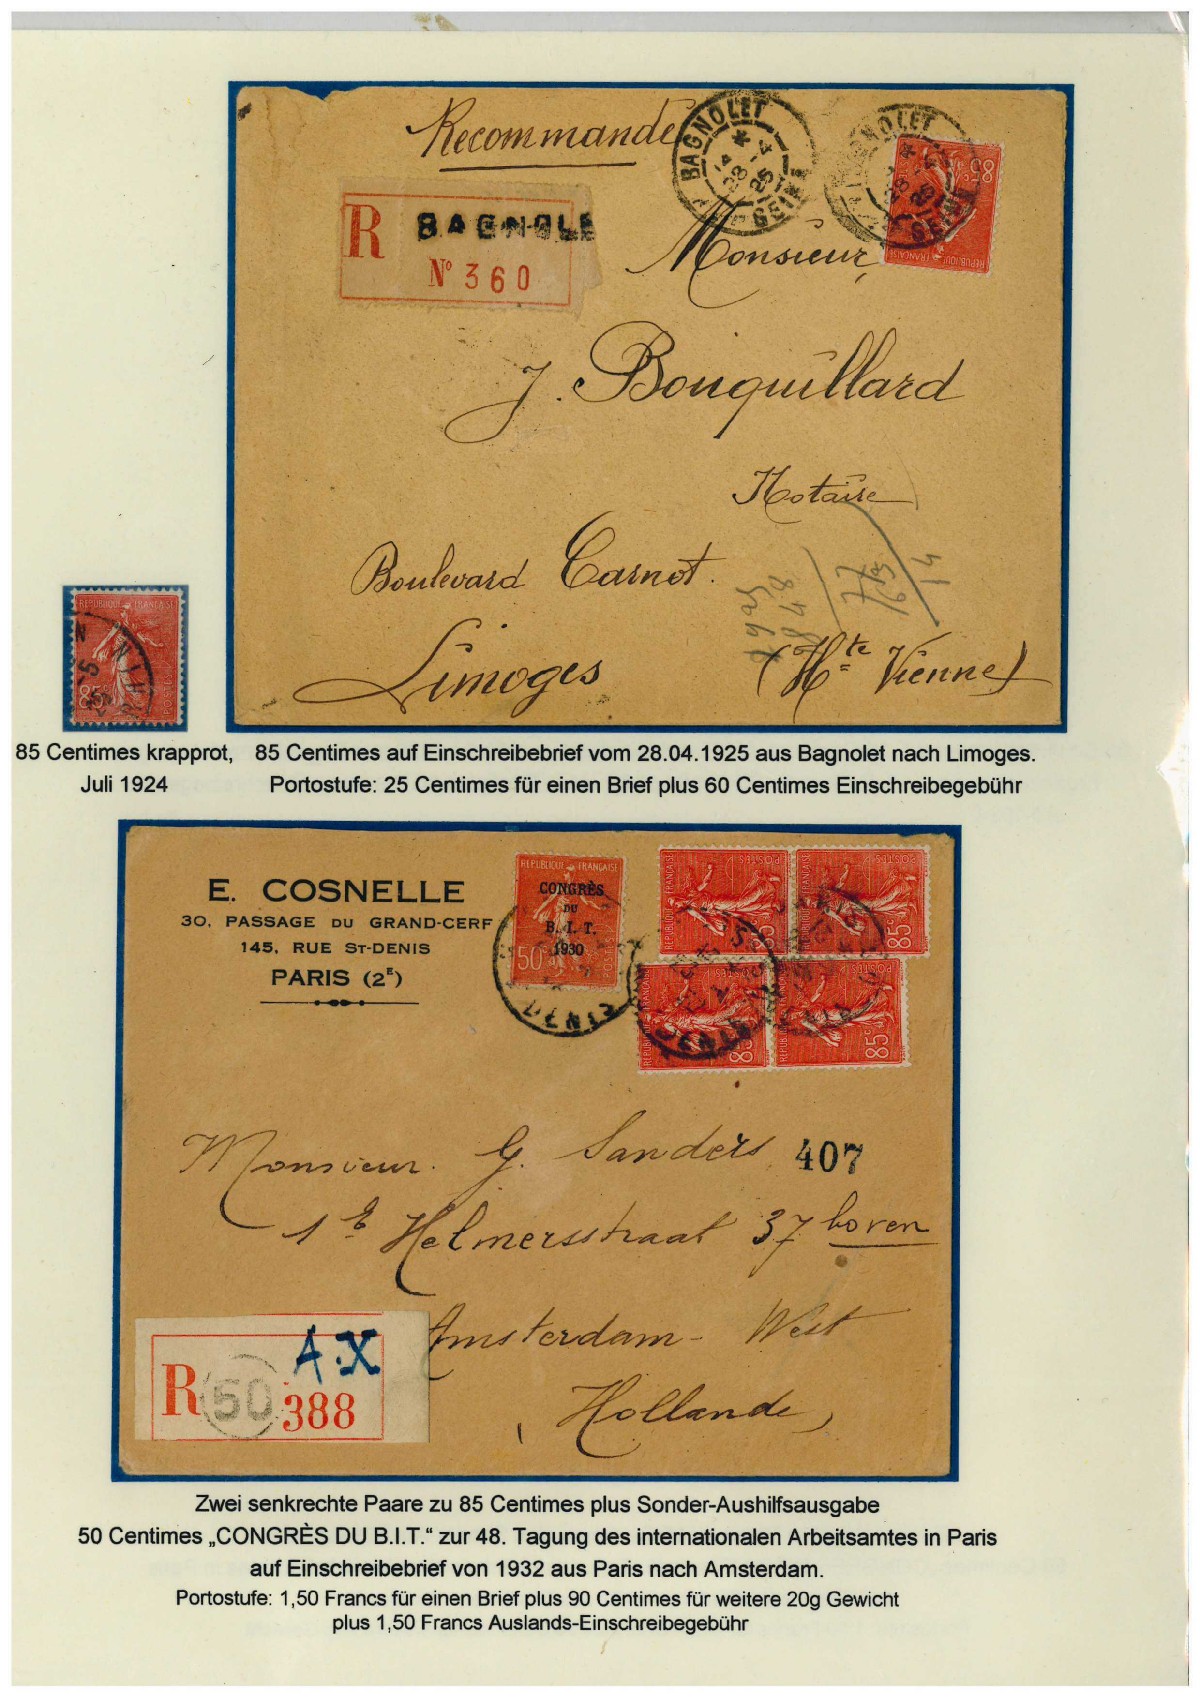 Recommandé
BAGNOLET
SEINE
28-4
25
R
BAGNOLE
N° 360
85c
RÉPUBLIQUE FRANÇAISE
Monsieur,
J. Bouquillard
Notaire
Boulevard Carnot.
Limoges
(Hte Vienne)
RÉPUBLIQUE FRANÇAISE
85c
POSTES
85 Centimes krapprot,
Juli 1924
85 Centimes auf Einschreibebrief vom 28.04.1925 aus Bagnolet nach Limoges.
Portostufe: 25 Centimes für einen Brief plus 60 Centimes Einschreibegebühr
E. COSNELLE
30, PASSAGE DU GRAND-CERF
145, RUE ST-DENIS
PARIS (2E)
RÉPUBLIQUE FRANÇAISE
CONGRÈS
DU
B. I. T.
1930
50c
POSTES
85c
85c
85c
85c
Monsieur. G. Sanders
407
1e Helmersstraat 37 boven
Amsterdam - West
(Hollande)
A.X
R 50 388
Zwei senkrechte Paare zu 85 Centimes plus Sonder-Aushilfsausgabe
50 Centimes „CONGRÈS DU B.I.T.“ zur 48. Tagung des internationalen Arbeitsamtes in Paris
auf Einschreibebrief von 1932 aus Paris nach Amsterdam.
Portostufe: 1,50 Francs für einen Brief plus 90 Centimes für weitere 20g Gewicht
plus 1,50 Francs Auslands-Einschreibegebühr